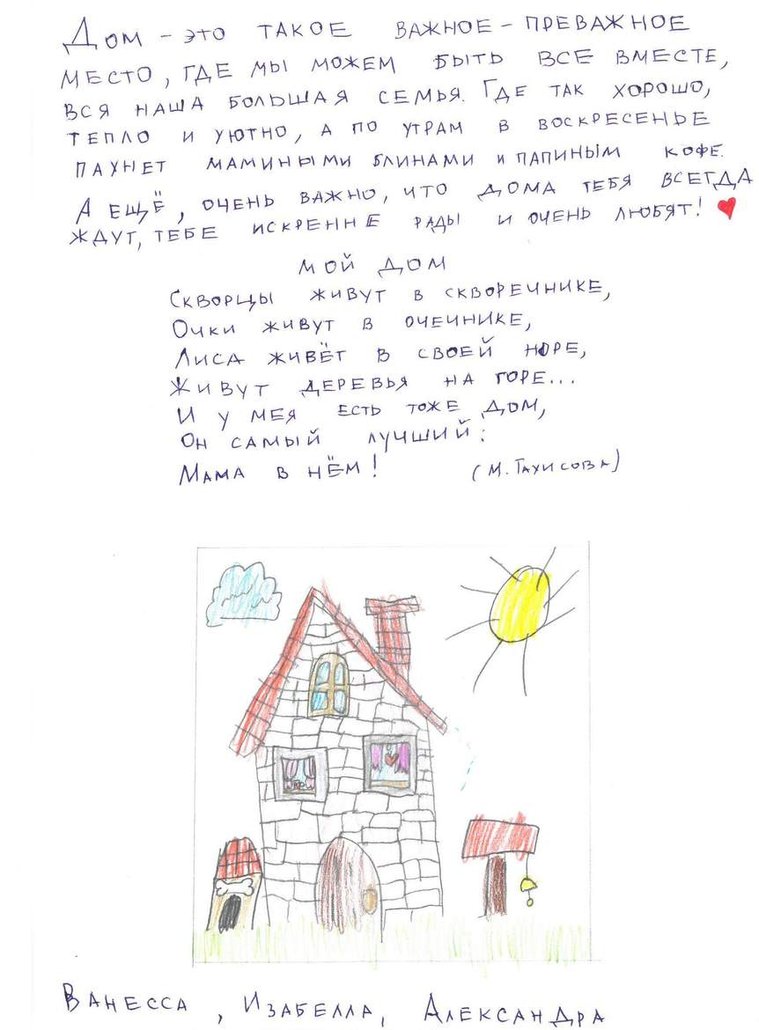 Дом – это такое важное – преважное
место, где мы можем быть все вместе,
вся наша большая семья. Где так хорошо,
тепло и уютно, а по утрам в воскресенье
пахнет мамиными блинами и папиным кофе.
А ещё, очень важно, что дома тебя всегда
ждут, тебе искренне рады и очень любят!
Мой дом
Скворцы живут в скворечнике,
Очки живут в очечнике,
Лиса живёт в своей норе,
Живут деревья на горе...
И у мея есть тоже дом,
Он самый лучший:
Мама в нём! (М. Тахисова)
Ванесса, Изабелла, Александра